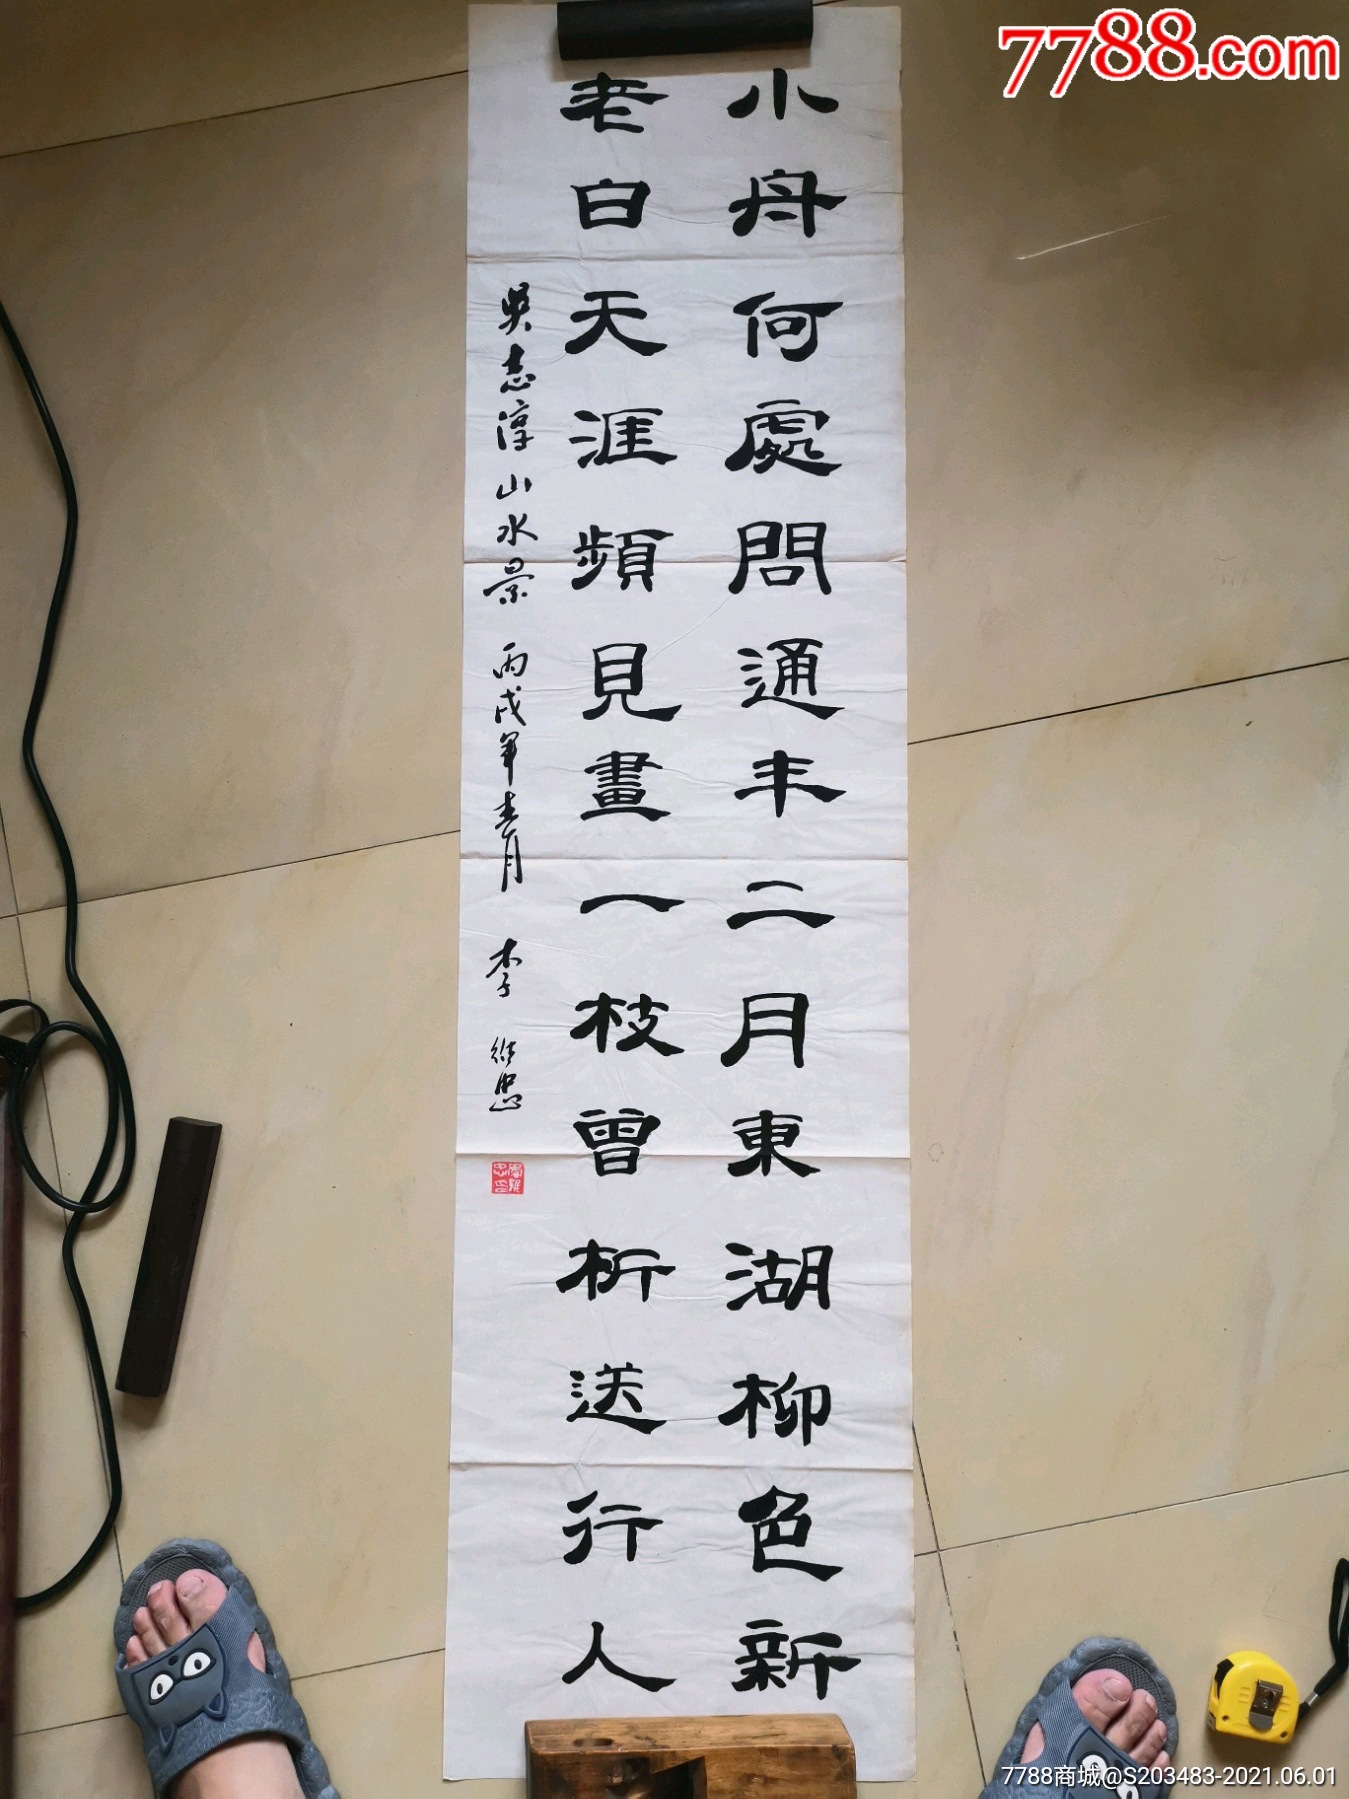 7788.com
小舟何處問通丰二月東湖柳色新
老白天涯頻見畫一枝曾析送行人
吳志淳山水景 丙戌年春月 李維忠
7788商城@S203483-2021.06.01